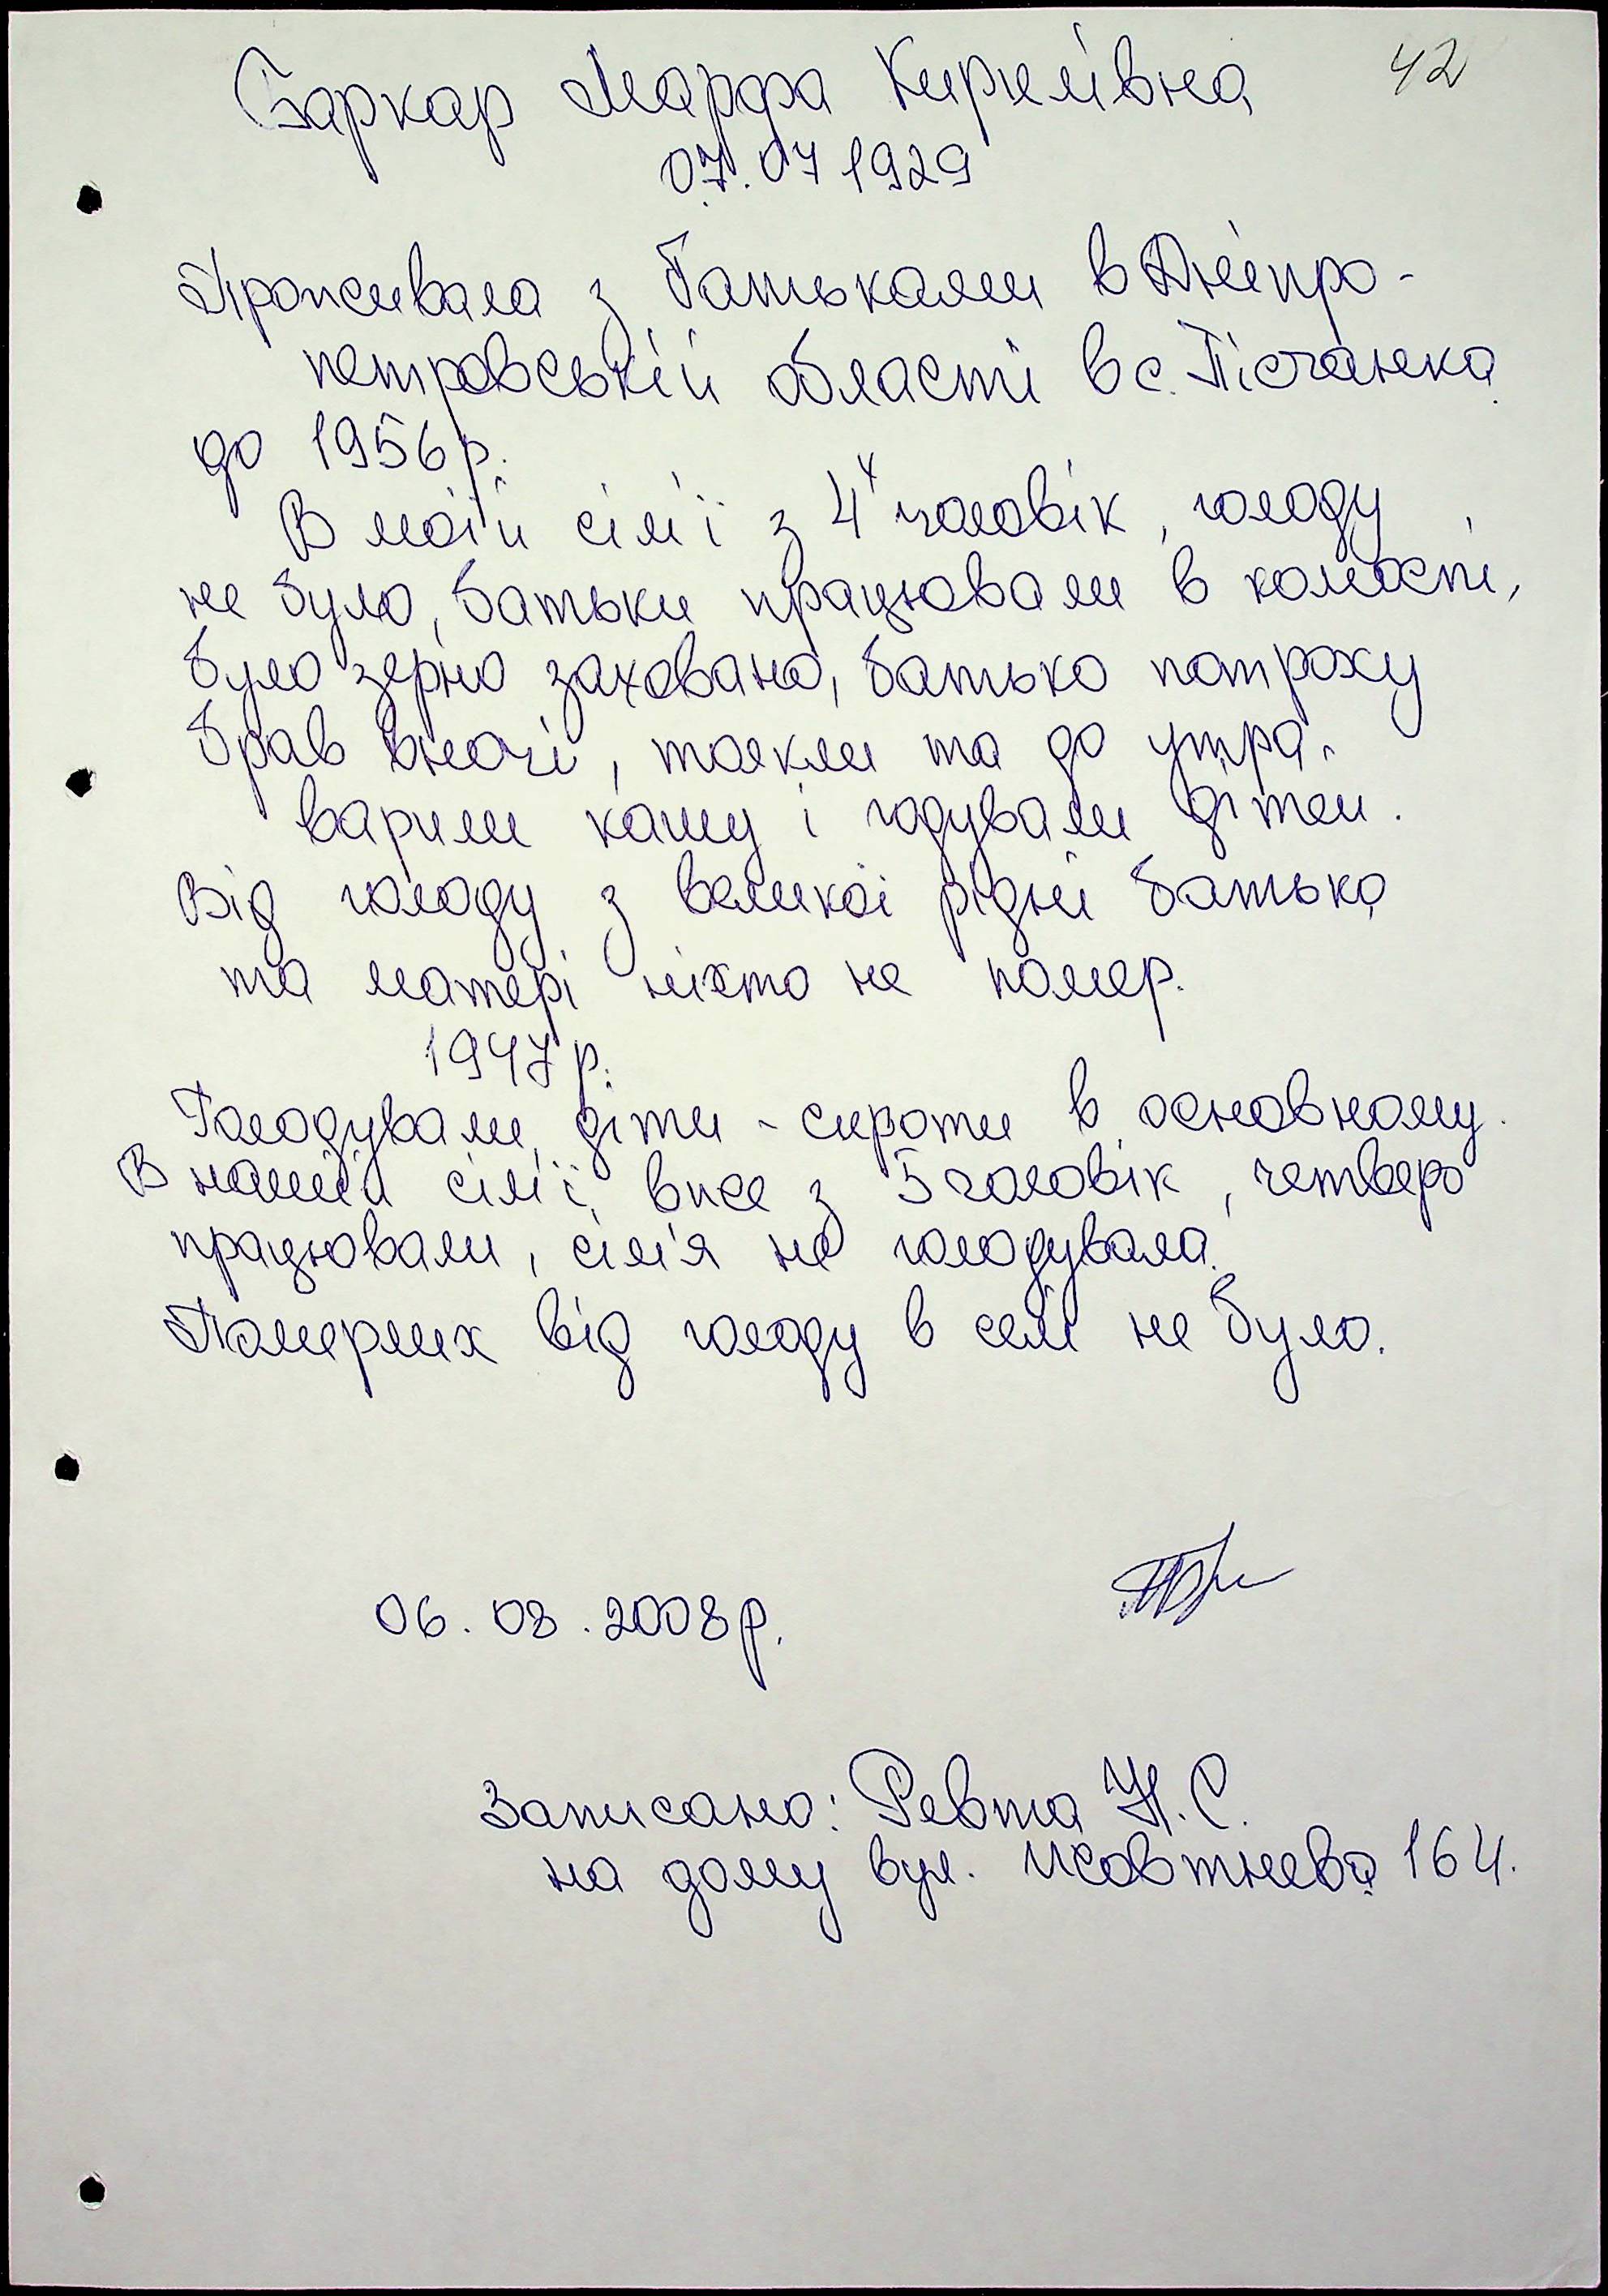 42
Баркар Марфа Кирилівна
07.07 1929
Проживала з батьками в Дніпро-
петровській області в с. Пісчанка
до 1956р.
В моїй сім'ї з 4х чоловік, голоду
не було, батьки працювали в колгоспі,
було зерно заховано, батько потроху
брав вночі, товкли та до утра
варили кашу і годували дітей.
Від голоду з великої рідні батька
та матері ніхто не помер.
1947р.
Голодували діти - сироти в основному.
В нашій сім'ї вже з 5 чоловік, четверо
працювали, сім'я не голодувала.
Померлих від голоду в селі не було.
06.08.2008р.
Записано: Ревта Н.С.
на дому вул. Жовтнева 164.